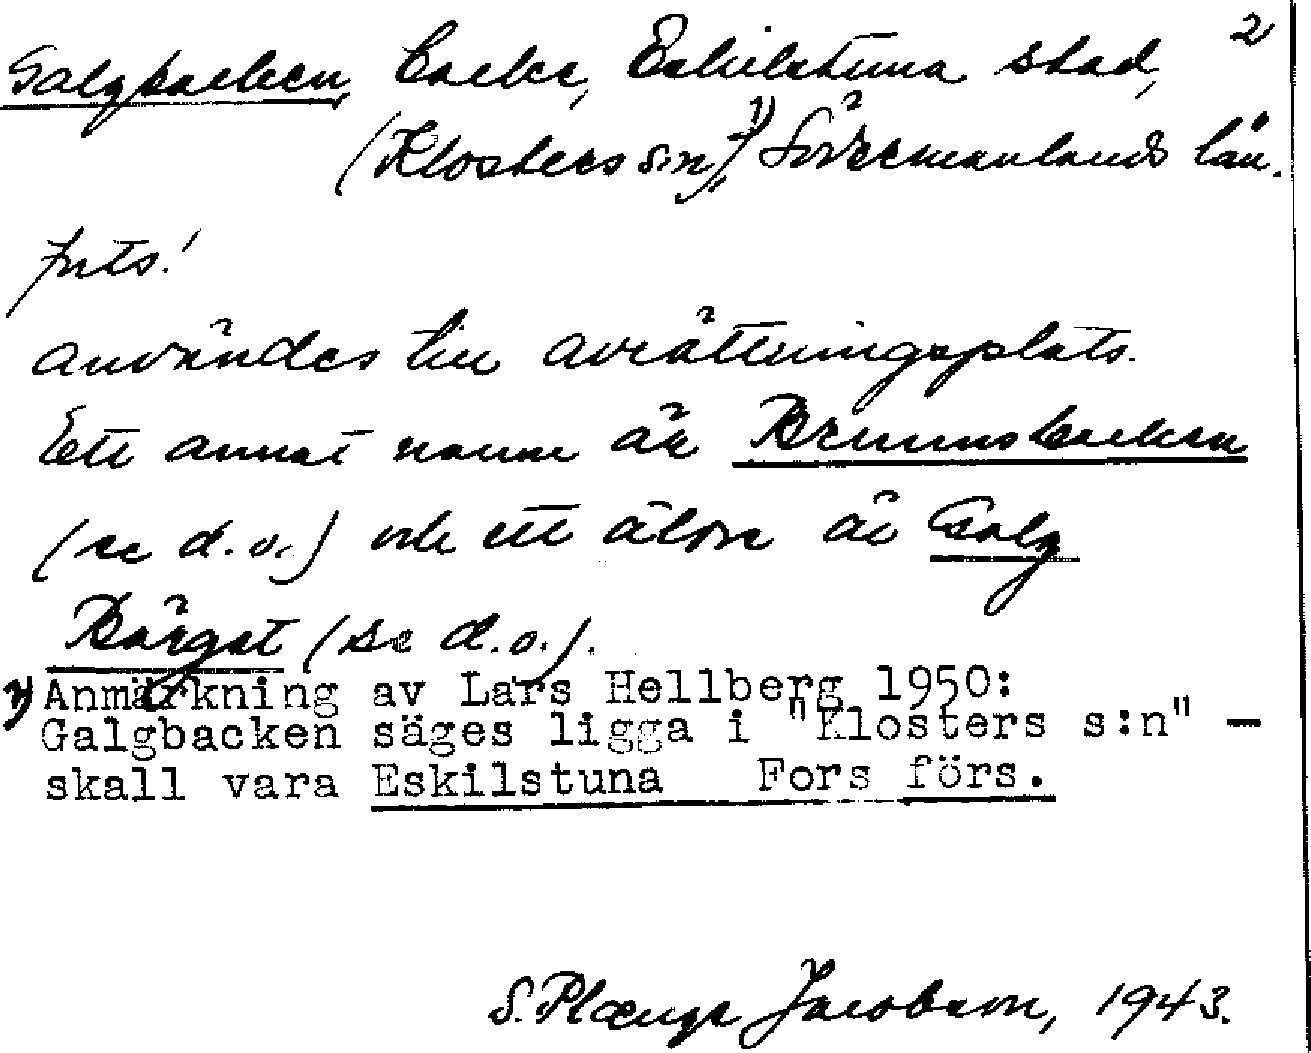 2
Galgbacken, backe, Eskilstuna stad,
(Klosters s:n),¹⁾ Södermanlands län.
användes till avrättningsplats.
Ett annat namn är Brunnsbacken
(se d.o.) och ett äldre är Galg
Bärget (se d.o.).
1) Anmärkning av Lars Hellberg 1950:
Galgbacken säges ligga i "Klosters s:n" –
skall vara Eskilstuna Fors förs.
S. Plænge Jacobson, 1943.